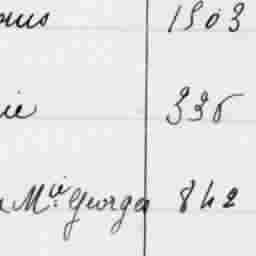 ous 1503
ie 336
Mie Georges 842